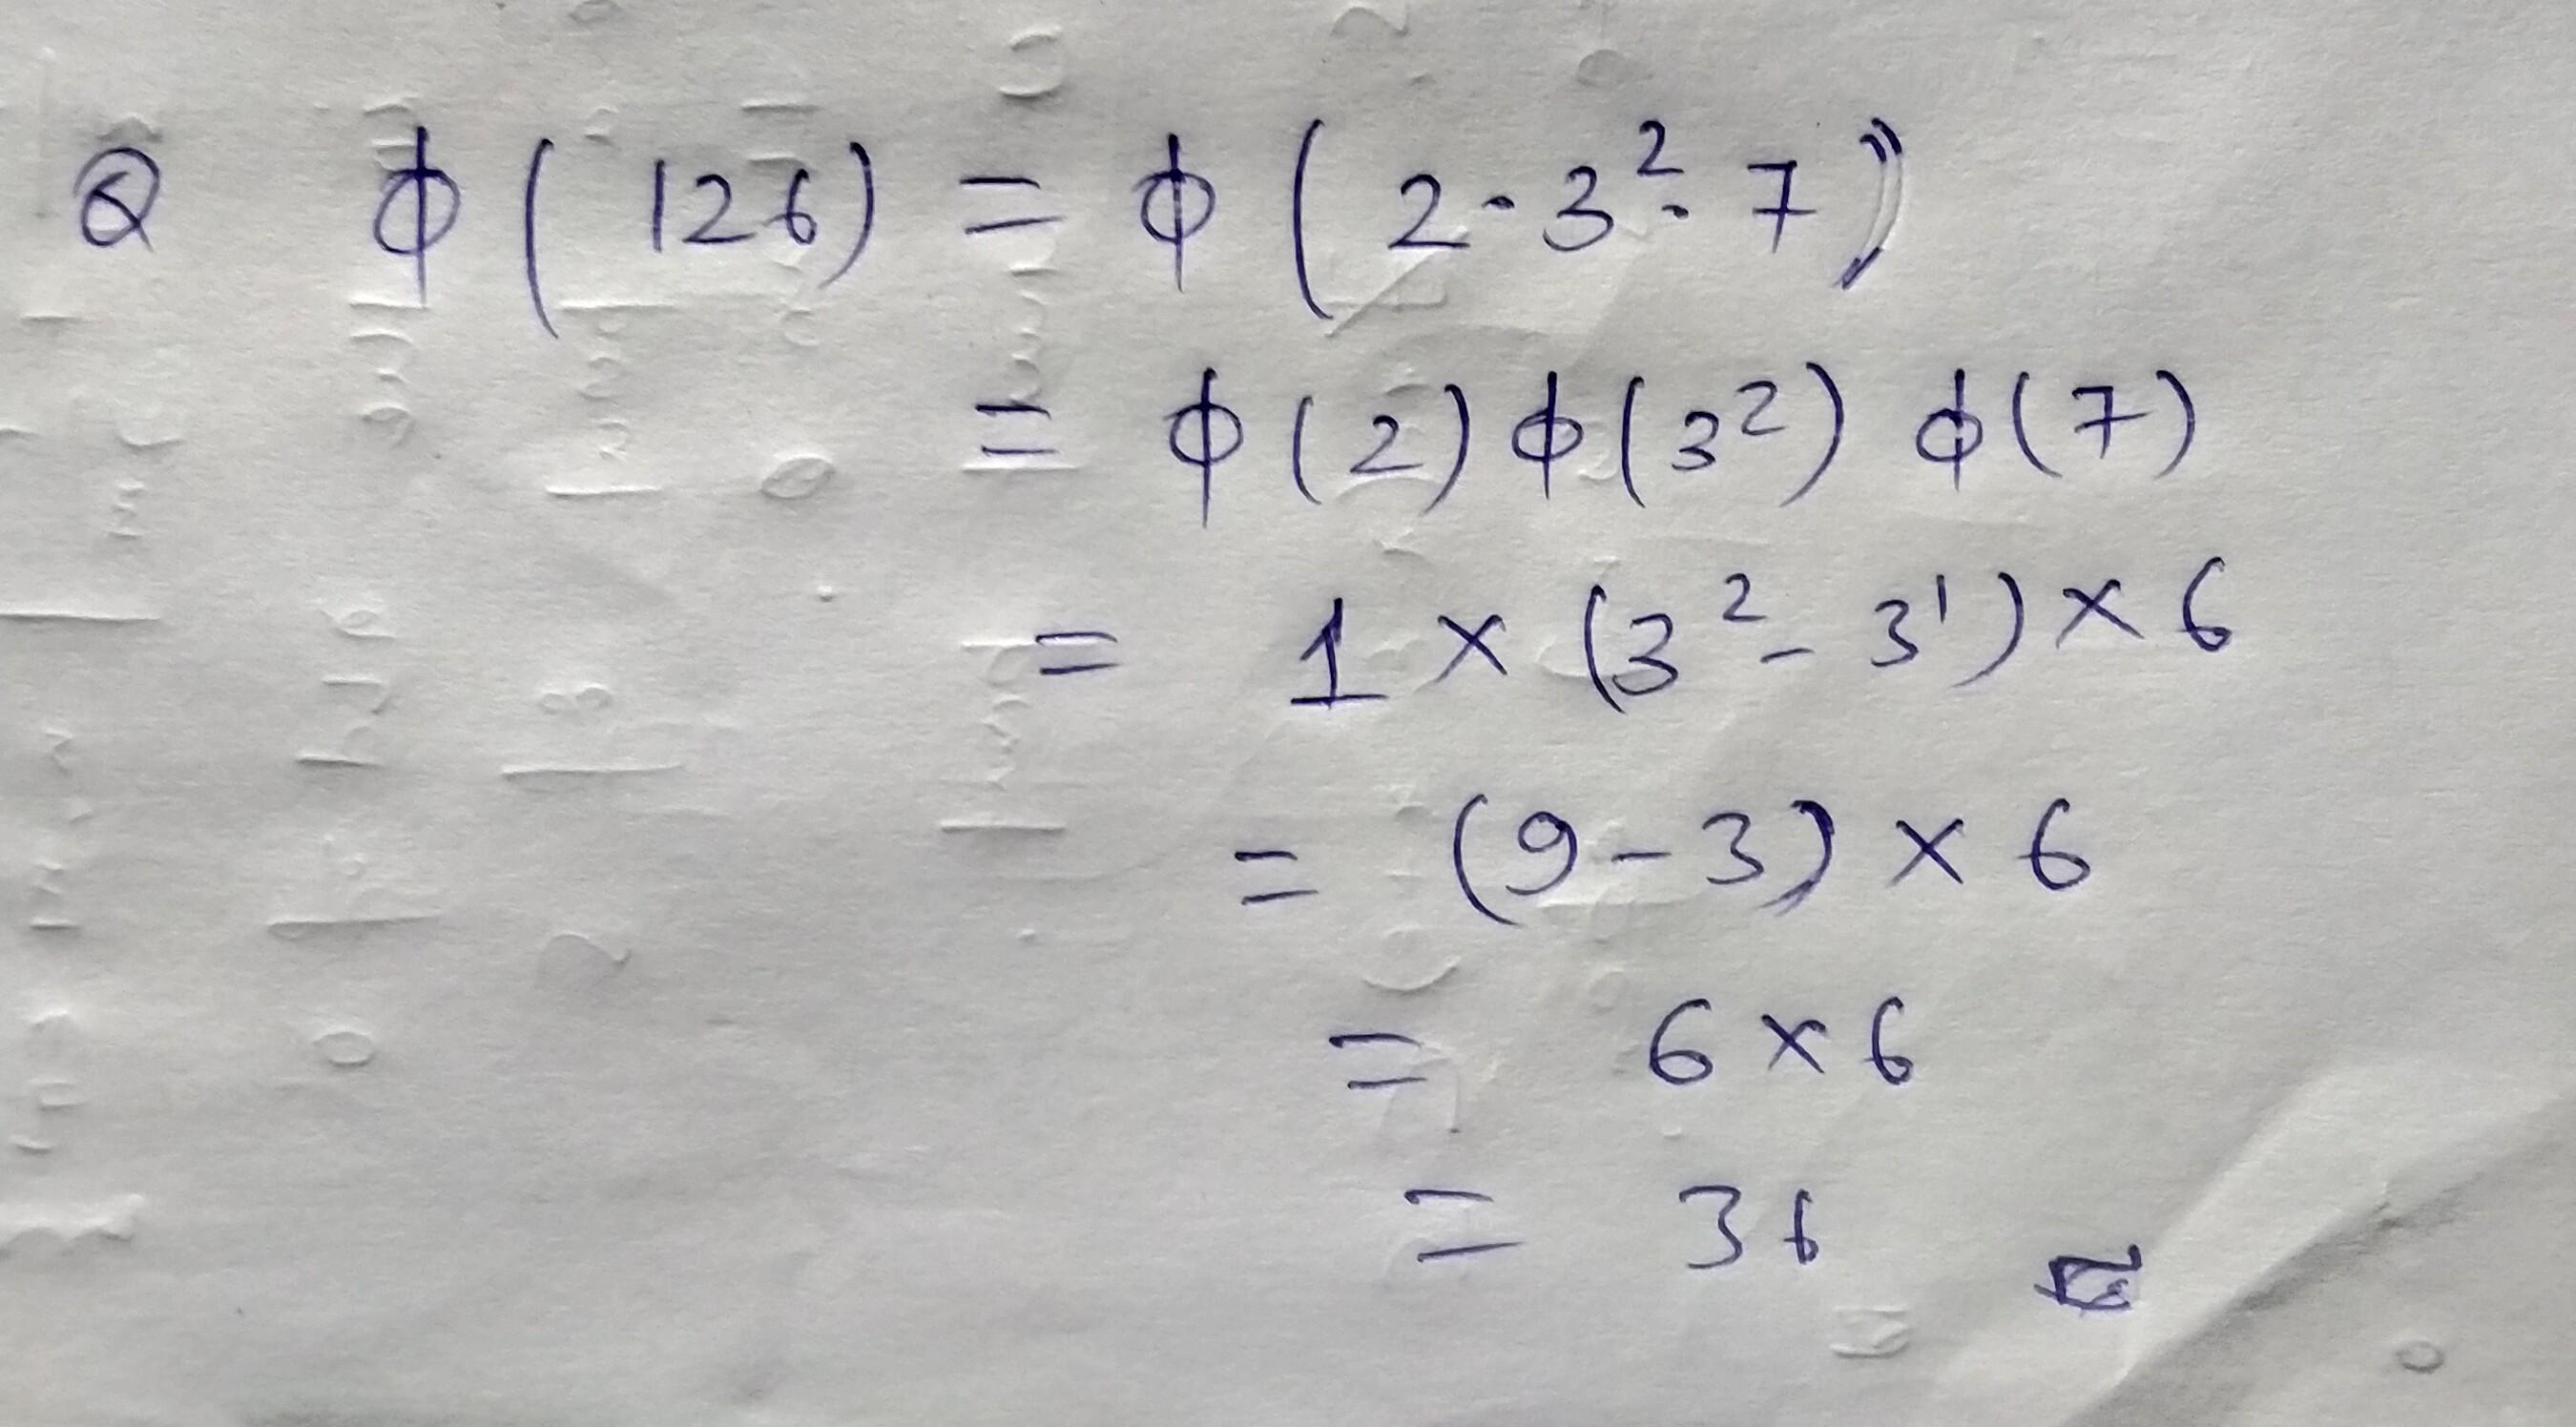 Q ϕ(126) = ϕ(2·3²·7)
= ϕ(2)ϕ(3²)ϕ(7)
= 1 × (3² - 3¹) × 6
= (9-3) × 6
= 6 × 6
= 36